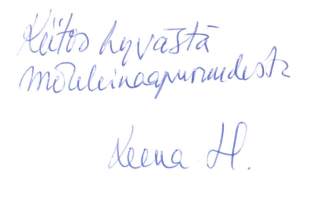 Kiitos hyvästä
mökkinaapuruudesta
Leena H.